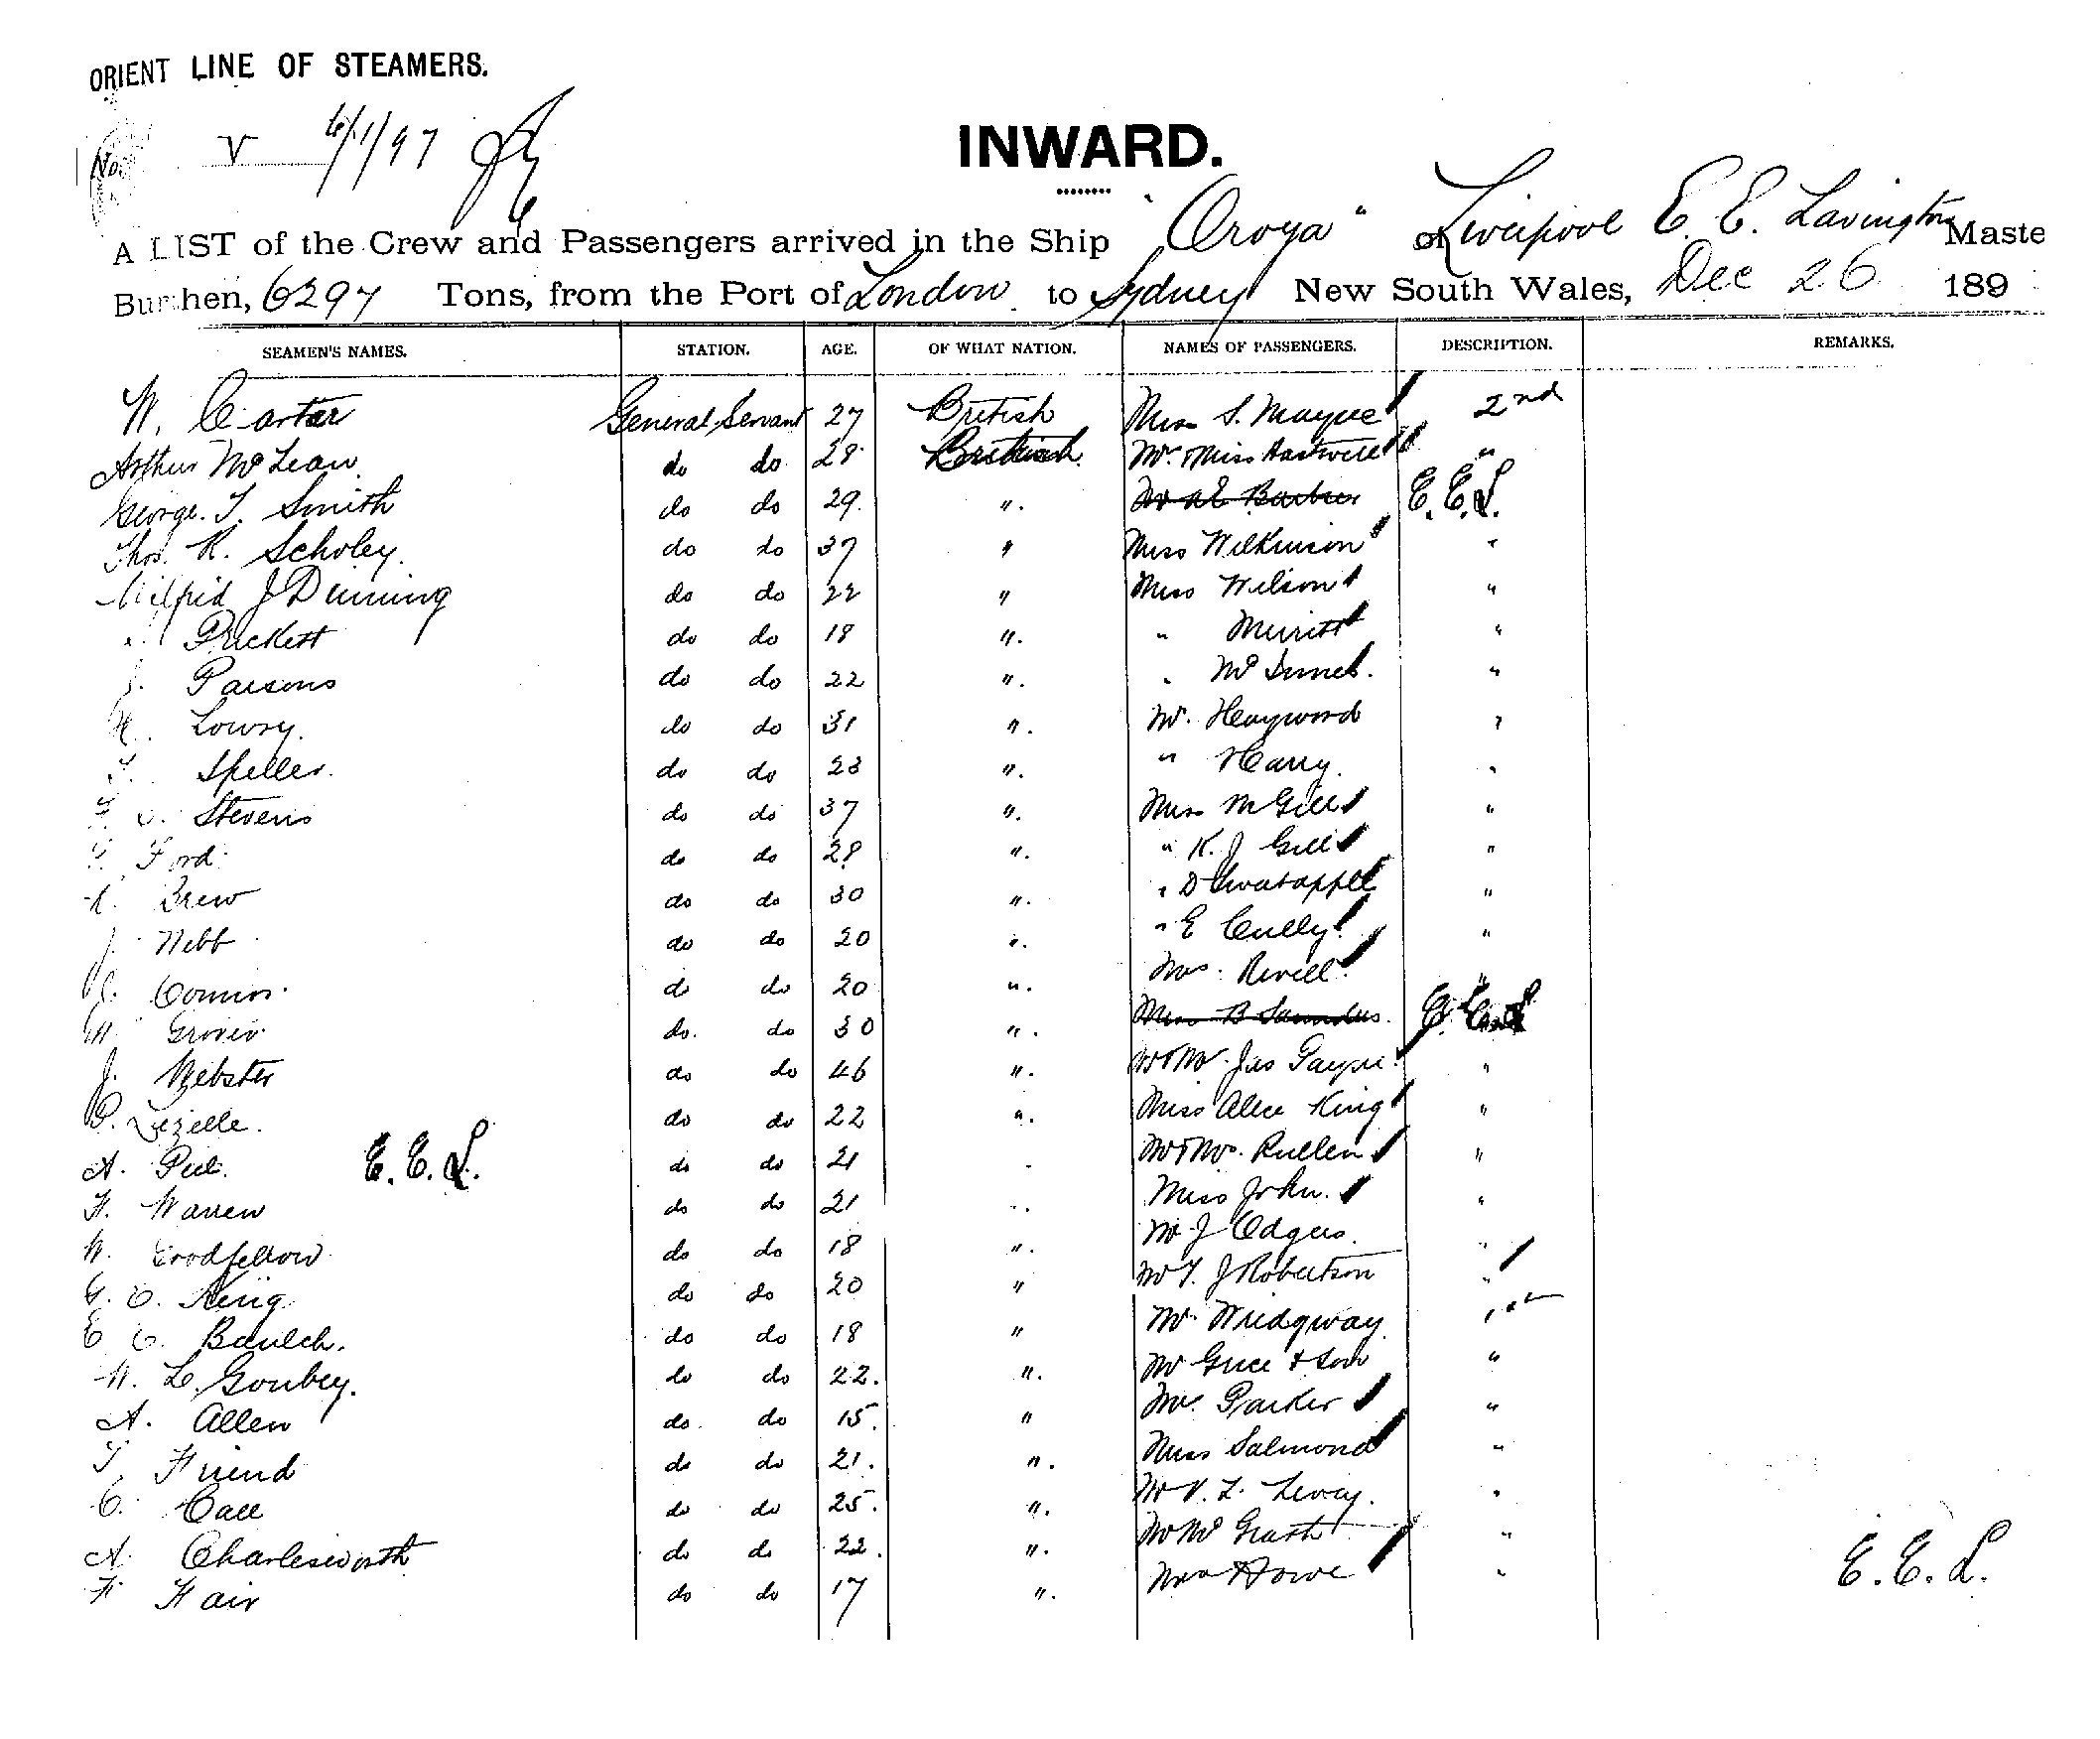 ORIENT LINE OF STEAMERS.
No. V 6/1/97
INWARD.
A LIST of the Crew and Passengers arrived in the Ship "Oroya" of Liverpool E. E. Lavington Maste
Burthen, 6297 Tons, from the Port of London to Sydney New South Wales, Dec 26 189
SEAMEN'S NAMES. STATION. AGE. OF WHAT NATION. NAMES OF PASSENGERS. DESCRIPTION. REMARKS.
W. Carter General Servant 27 British Miss S. Mayne 2nd
Arthur McLean do do 28 British Mr & Miss Hartwell "
George. T. Smith do do 29. ". Barber E. E. L.
Thos. R. Scholey. do do 37 " Miss Wilkinson "
Wilfrid J Dunning do do 22 " Miss Wilson "
Puckett do do 18 ". " Merritt "
J. Parsons do do 22 ". " McInnes. "
H. Lowry. do do 31 ". Mr. Heywood "
T. Speller. do do 23 ". " Harry. "
Stevens do do 37 ". Miss M Gill "
Ford do do 28 ". " K. J Gill "
Brew do do 30 ". " D "
J. Webb do do 20 ". " E Cully "
do 20 ". Mrs. Revell "
W. Groves do. do 30 ". Miss B Saunders. E. E. L
J. Webster do do 46 ". Jas Payne "
P. Lezelle. do do 22 ". Miss Alice King "
A. E. E. L. do do 21 Mr & Mrs. Pullen "
F. Warren do do 21 Miss John. "
W. Goodfellow do do 18 ". Mr J Odgers. "
G. C. King do do 20 " Mr T. J Robertson "
E C. Baulch. do do 18 " Mr. Widgway 1st
W. L. Goubey. do do 22. ". Mr Grice & Son "
A. Allen do. do 15. " Mr. Parker "
T. Friend do do 21. ". Miss Salmond "
C. do do 25. ". Mr V. L. Levey. "
A. Charlesworth do do 22. ". Mr McGrath "
F. Fair do do 17 ". Howe " E. E. L.